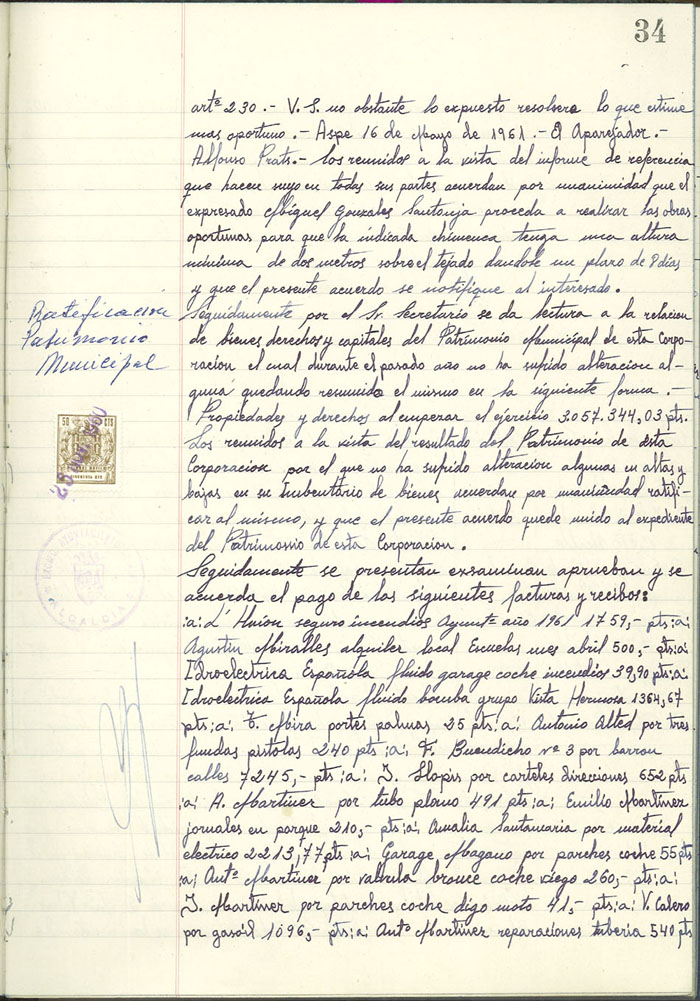 34
artº 230.- V.S. no obstante lo expuesto resolvera lo que estime
mas oportuno.- Aspe 16 de Mayo de 1961.- El Aparejador.-
Alfonso Prats.- Los reunidos a la vista del informe de referencia
que hacen suyo en todas sus partes acuerdan por unanimidad que el
expresado Miguel Gonzales Santonja proceda a realizar las obras
oportunas para que la indicada chimenea tenga una altura
minima de dos metros sobre el tejado dandole un plazo de 8 dias
y que el presente acuerdo se notifique al interesado.
Ratificación
Patrimonio
Municipal
Seguidamente por el Sr. Secretario se da lectura a la relacion
de bienes derechos y capitales del Patrimonio Municipal de esta Corpo-
racion el cual durante el pasado año no ha sufrido alteracion al-
guna quedando resumido el mismo en la siguiente forma.-
Propiedades y derechos al empezar el ejercicio 3.057.344,03 pts.
Los reunidos a la vista del resultado del Patrimonio de esta
Corporacion por el que no ha sufrido alteracion alguna en altas y
bajas en su Inbentario de bienes acuerdan por unanimidad ratifi-
car al mismo, y que el presente acuerdo quede unido al expediente
del Patrimonio de esta Corporacion.
50 CTS
ALCALDIA
Seguidamente se presentan exsaminan aprueban y se
acuerda el pago de las siguientes facturas y recibos:
:a: L'Union seguro incendios Ayuntº año 1961 1759,- pts:a:
Agustin Miralles alquiler local Escuelas mes abril 500,- pts:a:
Idroelectrica Española fluido garage coche incendios 39,90 pts:a:
Idroelectrica Española fluido bomba grupo Vista Hermosa 1364,67
pts:a: T. Mira portes palmas 25 pts:a: Antonio Alted por tres
fundas pistolas 240 pts:a: F. Buendicho nº 3 por barrou
calles 7245,- pts:a: J. Llopis por carteles direcciones 652 pts
:a: A. Martinez por tubo plomo 491 pts:a: Emilio Martinez
jornales en parque 210,- pts:a: Amalia Santamaria por material
electrico 2213,77 pts:a: Garage Magano por parches coche 55 pts
:a: Antº Martinez por valbula bronce coche riego 260,- pts:a:
J. Martinez por parches coche digo moto 41,- pts:a: V. Calero
por gasoil 1096,- pts:a: Antº Martinez reparaciones tuberia 540 pts